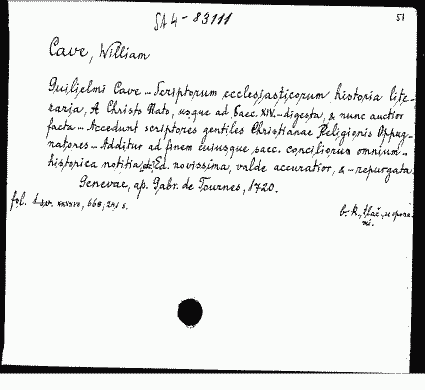 SA 4-83111
51
Cave, William
Guilielmi Cave... Scriptorum ecclesiasticorum historia lite-
raria, A Christo Nato, usque ad Saec. XIV... digesta, & nunc auctior
facta... Accedunt scriptores gentiles Christianae Religionis Oppug-
natores... Additur ad finem cujusque saec. conciliorum omnium...
historica notitia, Ed. novissima, valde accuratior, & ... repurgata.
Genevae, ap. Gabr. de Tournes, 1720.
fol. XXXVI, 668,